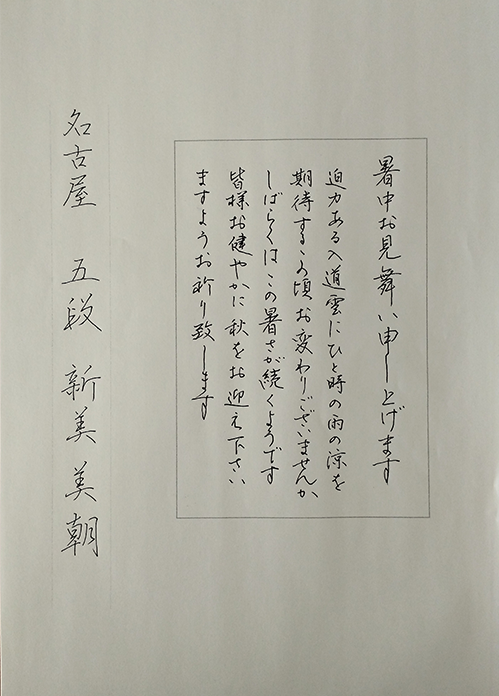 暑中お見舞い申し上げます
迫力ある入道雲にひと時の雨の涼を
期待するこの頃お変わりございませんか
しばらくはこの暑さが続くようです
皆様お健やかに秋をお迎え下さい
ますようお祈り致します
名古屋 五段 新美美朝